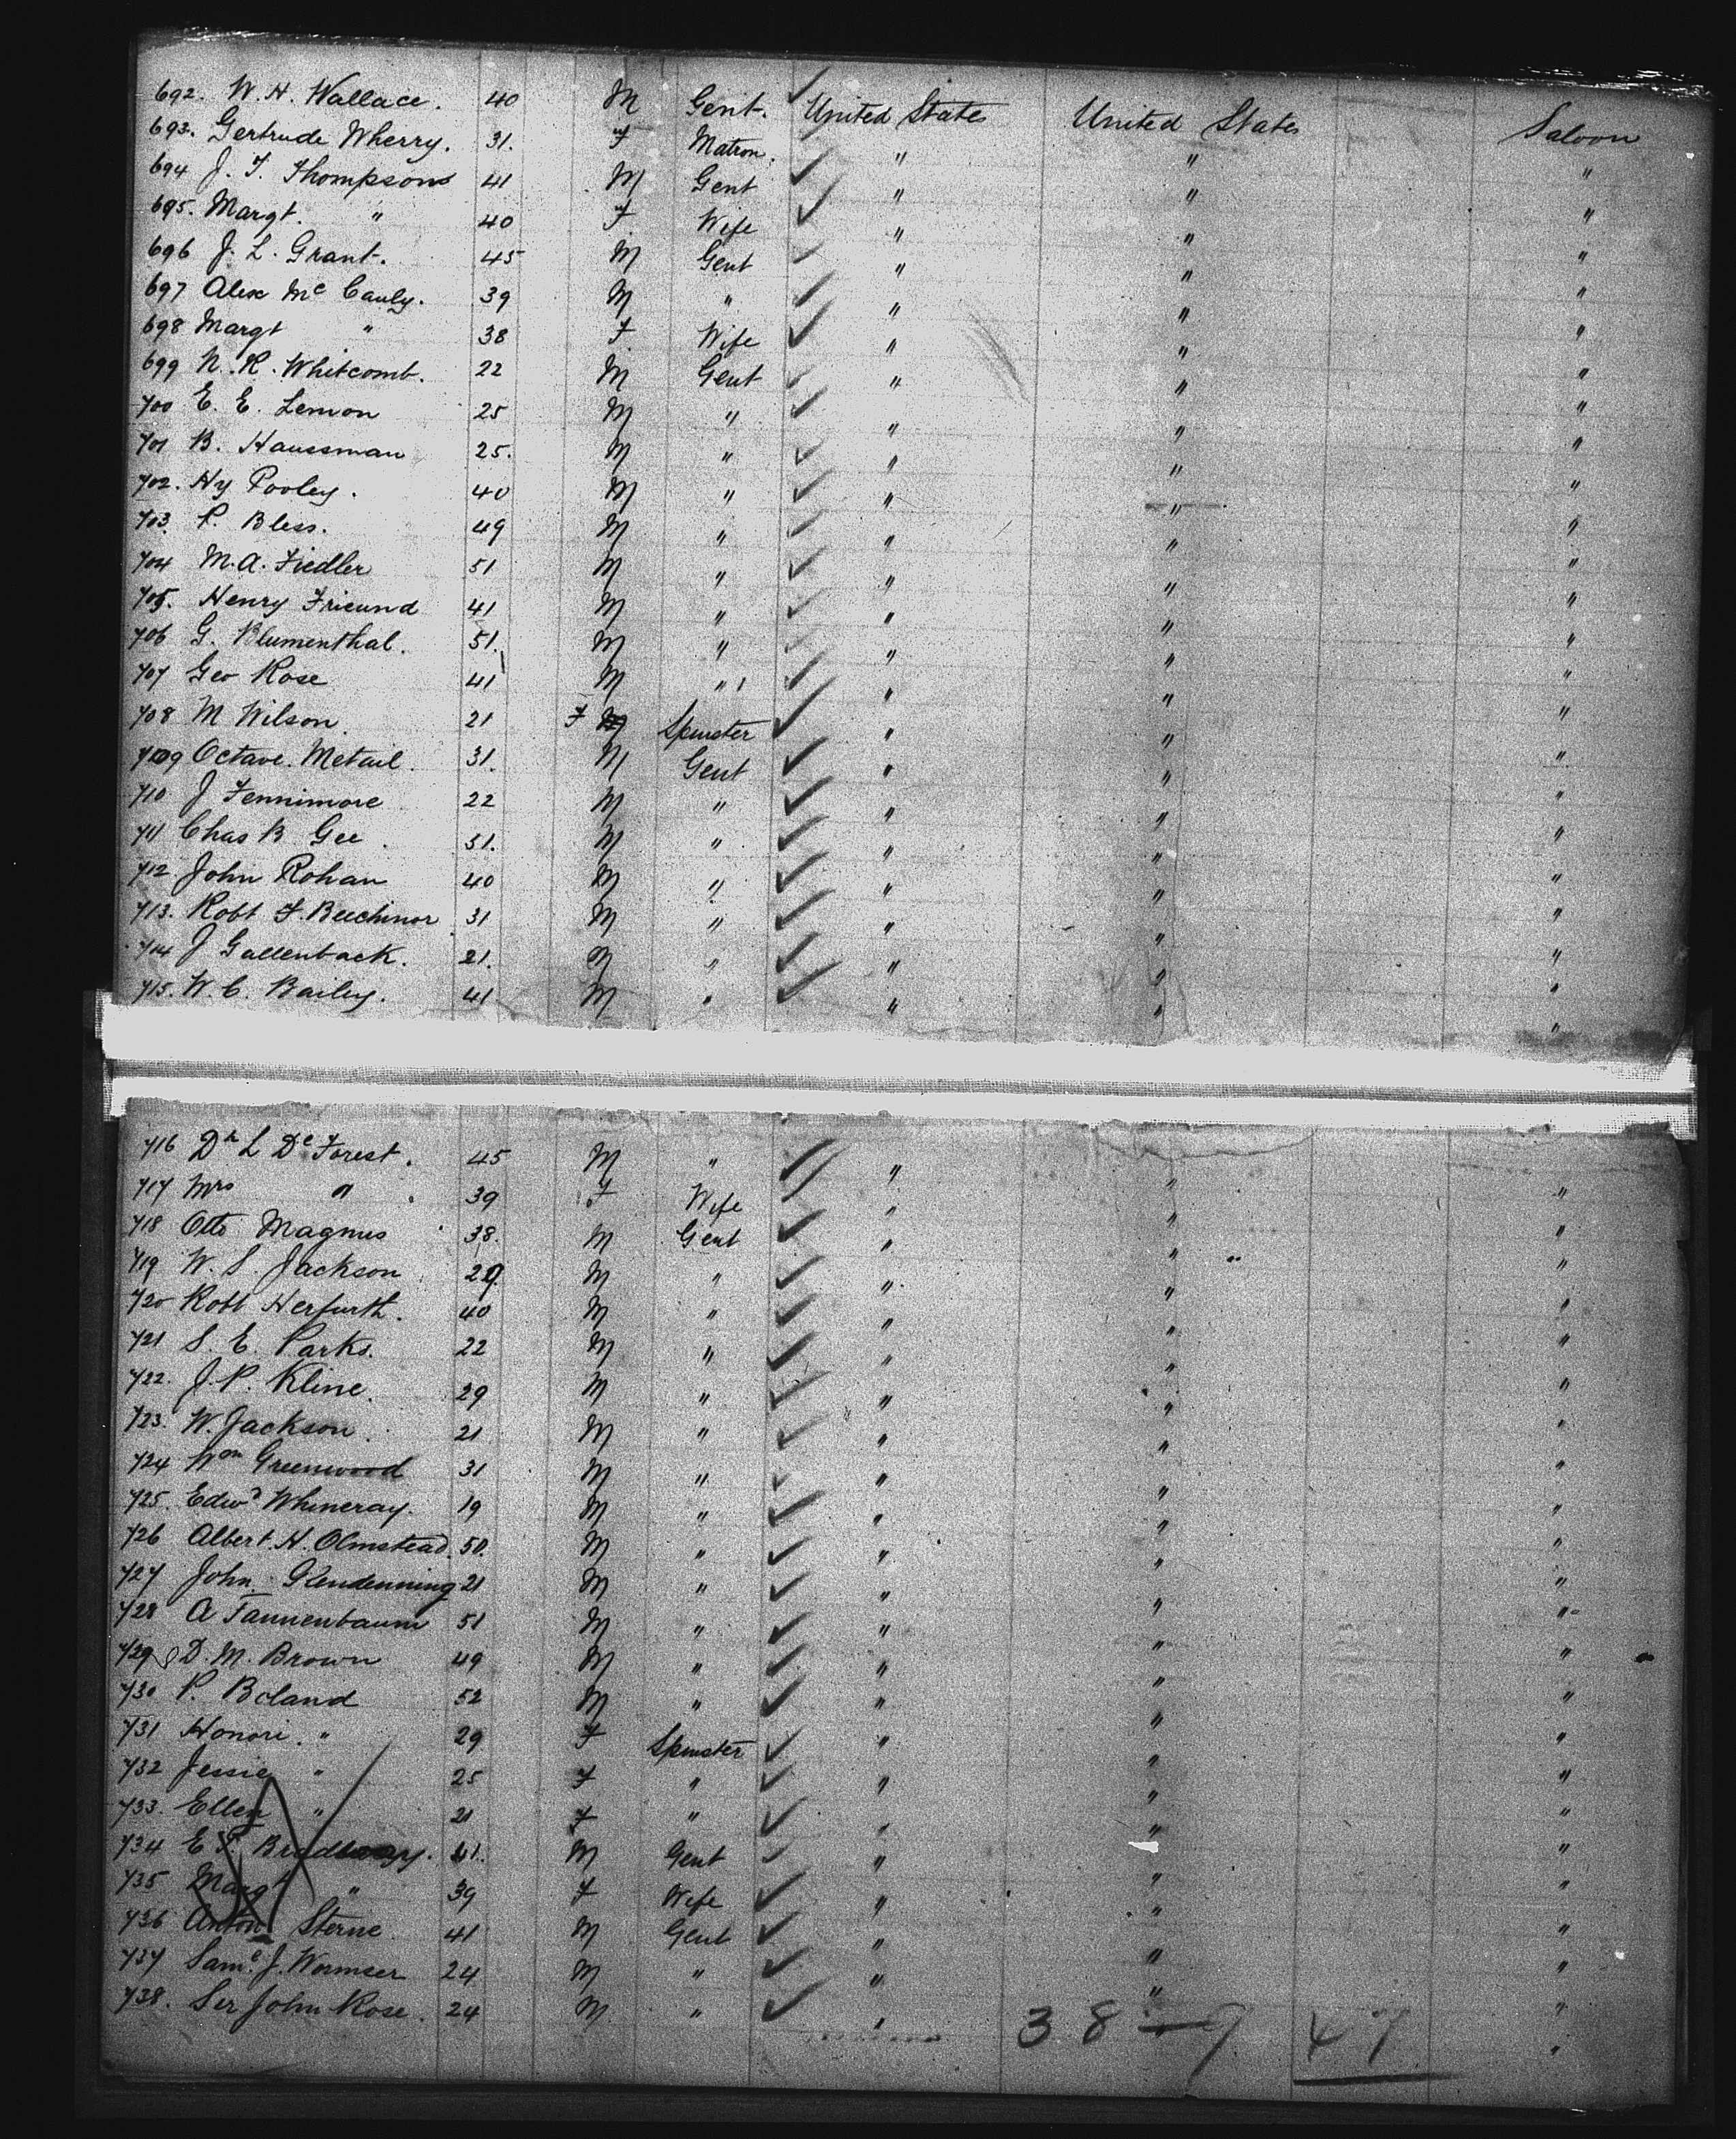 692. W. H. Wallace. 40 M Gent. United States United States Saloon
693. Gertrude Wherry. 31. F Matron. " " "
694 J. T. Thompson 41 M Gent " " "
695. Margt. " 40 F Wife " " "
696 J. L. Grant. 45 M Gent " " "
697 Alex Mc Cauly. 39 M " " " "
698 Margt " 38 F. Wife " " "
699 N. R. Whitcomb. 22 M Gent " " "
700 E. E. Lemon 25 M " " " "
701 B. Haussman 25. M " " " "
702. Hy Pooley. 40 M " " " "
703. P. Bless. 49 M " " " "
704 M. A. Fiedler 51 M " " " "
705. Henry Frieund 41 M " " " "
706 G. Blumenthal. 51. M " " " "
707 Geo Rose 41 M " " " "
708 M Wilson. 21 F Spinster " " "
709 Octave. Metail. 31. M Gent " " "
710 J Fennimore 22 M " " " "
711 Chas B Gee. 31. M " " " "
712. John Rohan 40 M " " " "
713. Robt F. Beechinor 31 M " " " "
714 J Gallenback. 21. M " " " "
715. W. C. Bailey. 41 M " " " "
716 Dr L De Forest. 45 M " " " "
717 Mrs " 39 F Wife " " "
718 Otto Magnus 38. M Gent " " "
719 W. S. Jackson 29. M " " " "
720 Robt Herfurth. 40 M " " " "
721 S. E. Parks. 22 M " " " "
722. J. P. Kline. 29 M " " " "
723. W. Jackson. 21 M " " " "
724 Wm Greenwood 31 M " " " "
725. Edwd Whineray. 19 M " " " "
726 Albert. H. Olmstead. 50. M " " " "
727 John. Glendenning 21 M " " " "
728 A Tannenbaum 51 M " " " "
729 D. M. Brown 49 M " " " "
730 P. Boland 52 M " " " "
731 Honori. " 29 F Spinster " " "
732 Jessie " 25 F " " " "
733. Ellen " 21 F " " " "
734 E 41. M Gent " " "
735 Margt " 39 F Wife " " "
736 Anton Sterne 41 M Gent " " "
737 Saml. J. Wormser 24 M " " " "
738. Sir John Rose. 24 M. " " " "
38 - 9 47